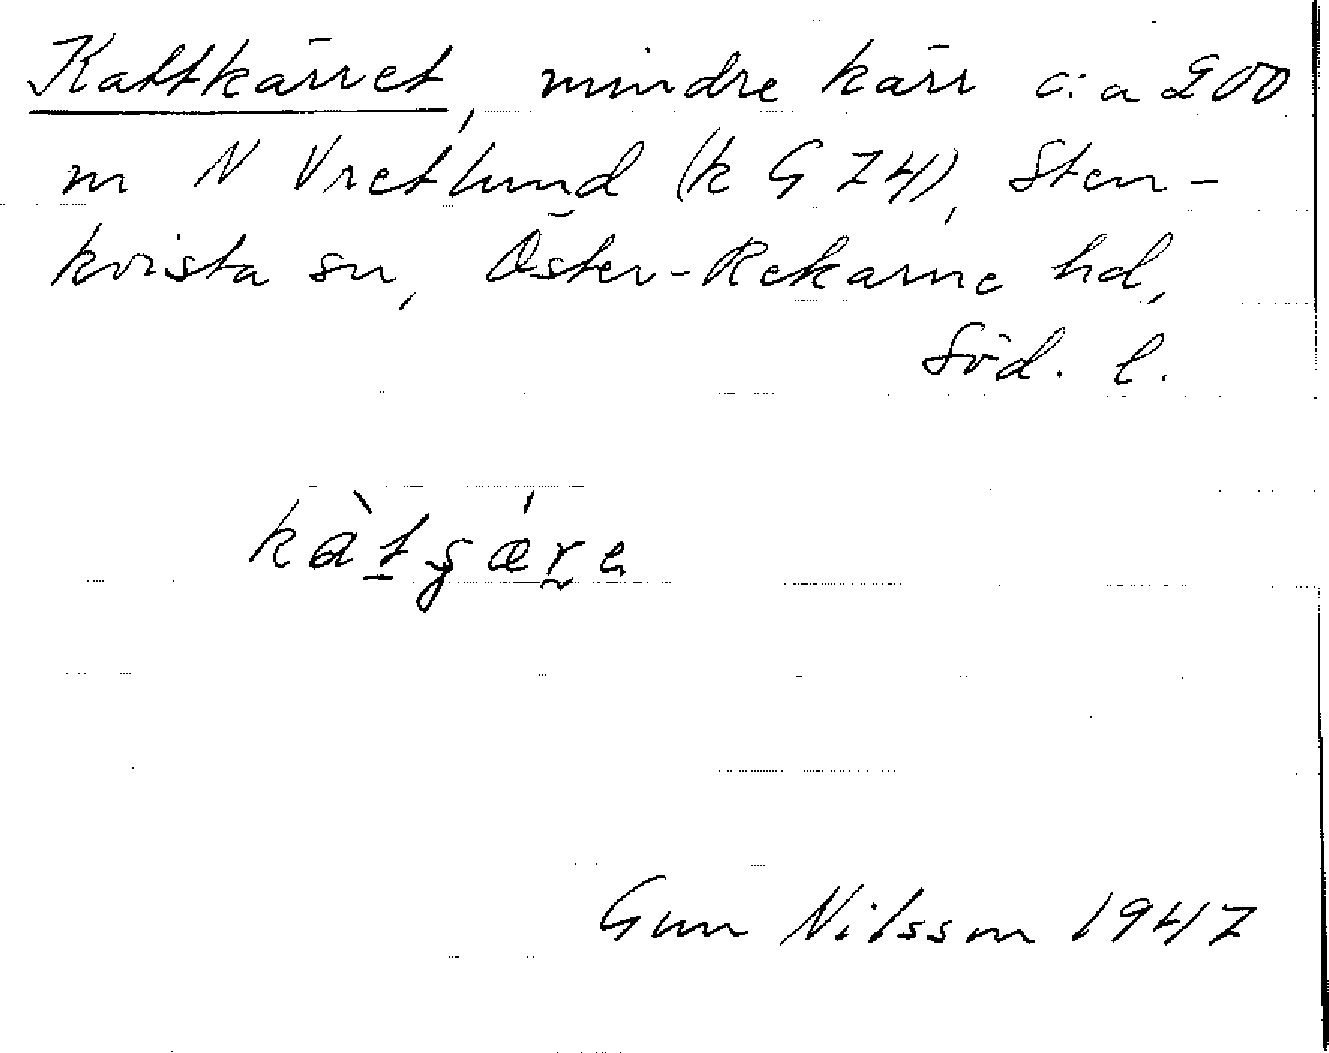 Kattkärret, mindre kärr c:a 200
m N Vretlund (k G 74), Sten-
kvista sn, Öster-Rekarne hd,
Söd. l.
Gun Nilsson 1947